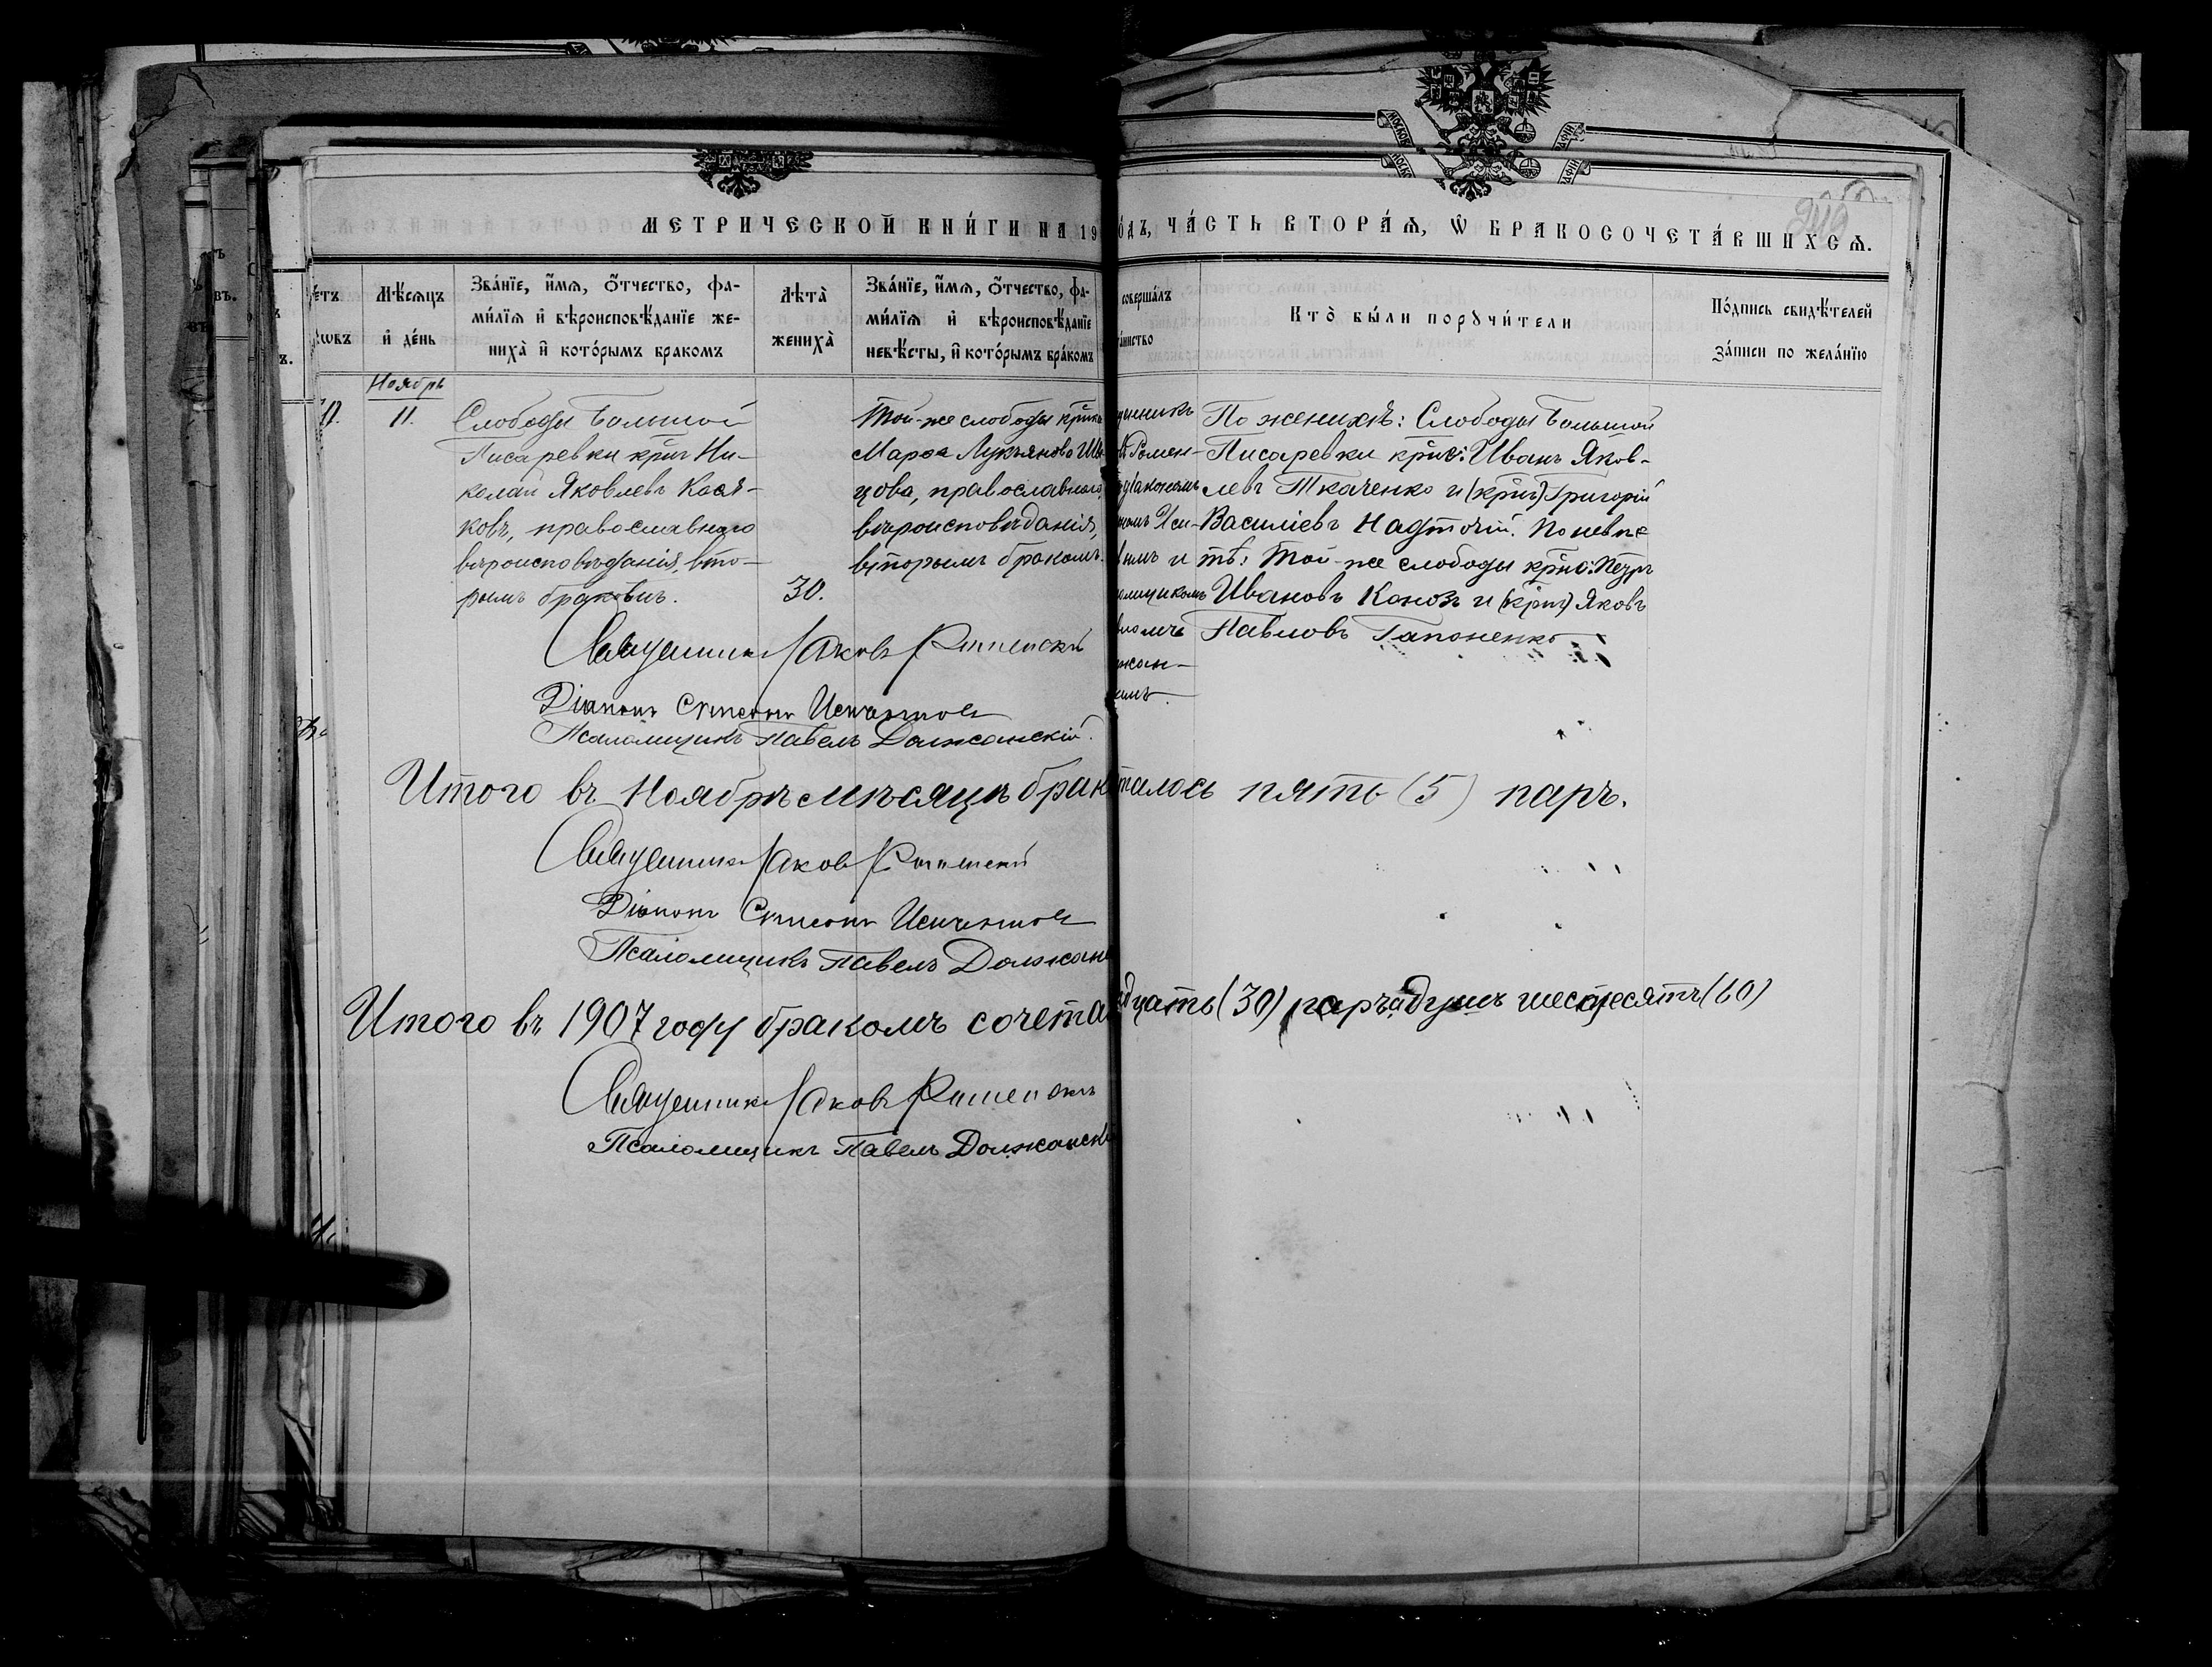 МЕТРИЧЕСКОЙ КНИ́ГИ НА 19
О́ДЪ, ЧА́СТЬ ВТОРА́Ѧ, Ѽ БРАКОСОЧЕТА́ВШИХСѦ.
Мѣ́сѧцъ и҆ де́нь
Зва́нїе, и҆́мѧ, ѻ҆́тчество, фа-
ми́лїѧ и҆ вѣроисповѣ́данїе же-
ниха̀ и҆ кото́рымъ бракомъ
Лѣта̀
жениха̀
Зва́нїе, и҆́мѧ, ѻ҆́тчество, фа-
ми́лїѧ и҆ вѣроисповѣ́данїе
невѣ́сты, и҆ кото́рымъ бра́комъ
соверша́лъ
Кто̀ бы́ли порꙋчи́тели
По́дпись свидѣ́телей
за́писи по жела́нїю
Ноябрь
11.
Слободы Большой
Писаревки кр̄нъ Ни-
колай Яковлевъ Кося-
ковъ, православнаго
вѣроисповѣданія, вто-
рымъ бракомъ.
30.
Той-же слободы
Марѳа Лукьянова
цова, православнаго
вѣроисповѣданія,
вторымъ бракомъ.
По женихѣ: Слободы Большой
Писаревки Иванъ Яков-
левъ Ткаченко и Григорій
Василіевъ Надточій. По невѣс
тѣ: Той-же слободы Петръ
Ивановъ и Яковъ
Павловъ Гапоненко
Священникъ Іаковъ
Діаконъ Симеонъ
Псаломщикъ Павелъ Должанскій.
Итого въ Ноябрѣ мѣсяцѣ брак
талось пять (5) паръ.
Священникъ Іаковъ
Діаконъ Симеонъ
Псаломщикъ Павелъ Должанс
Итого въ 1907 году бракомъ сочета
дцать (30) паръ а душъ шестдесятъ (60)
Священникъ Іаковъ
Псаломщикъ Павелъ Должанскі